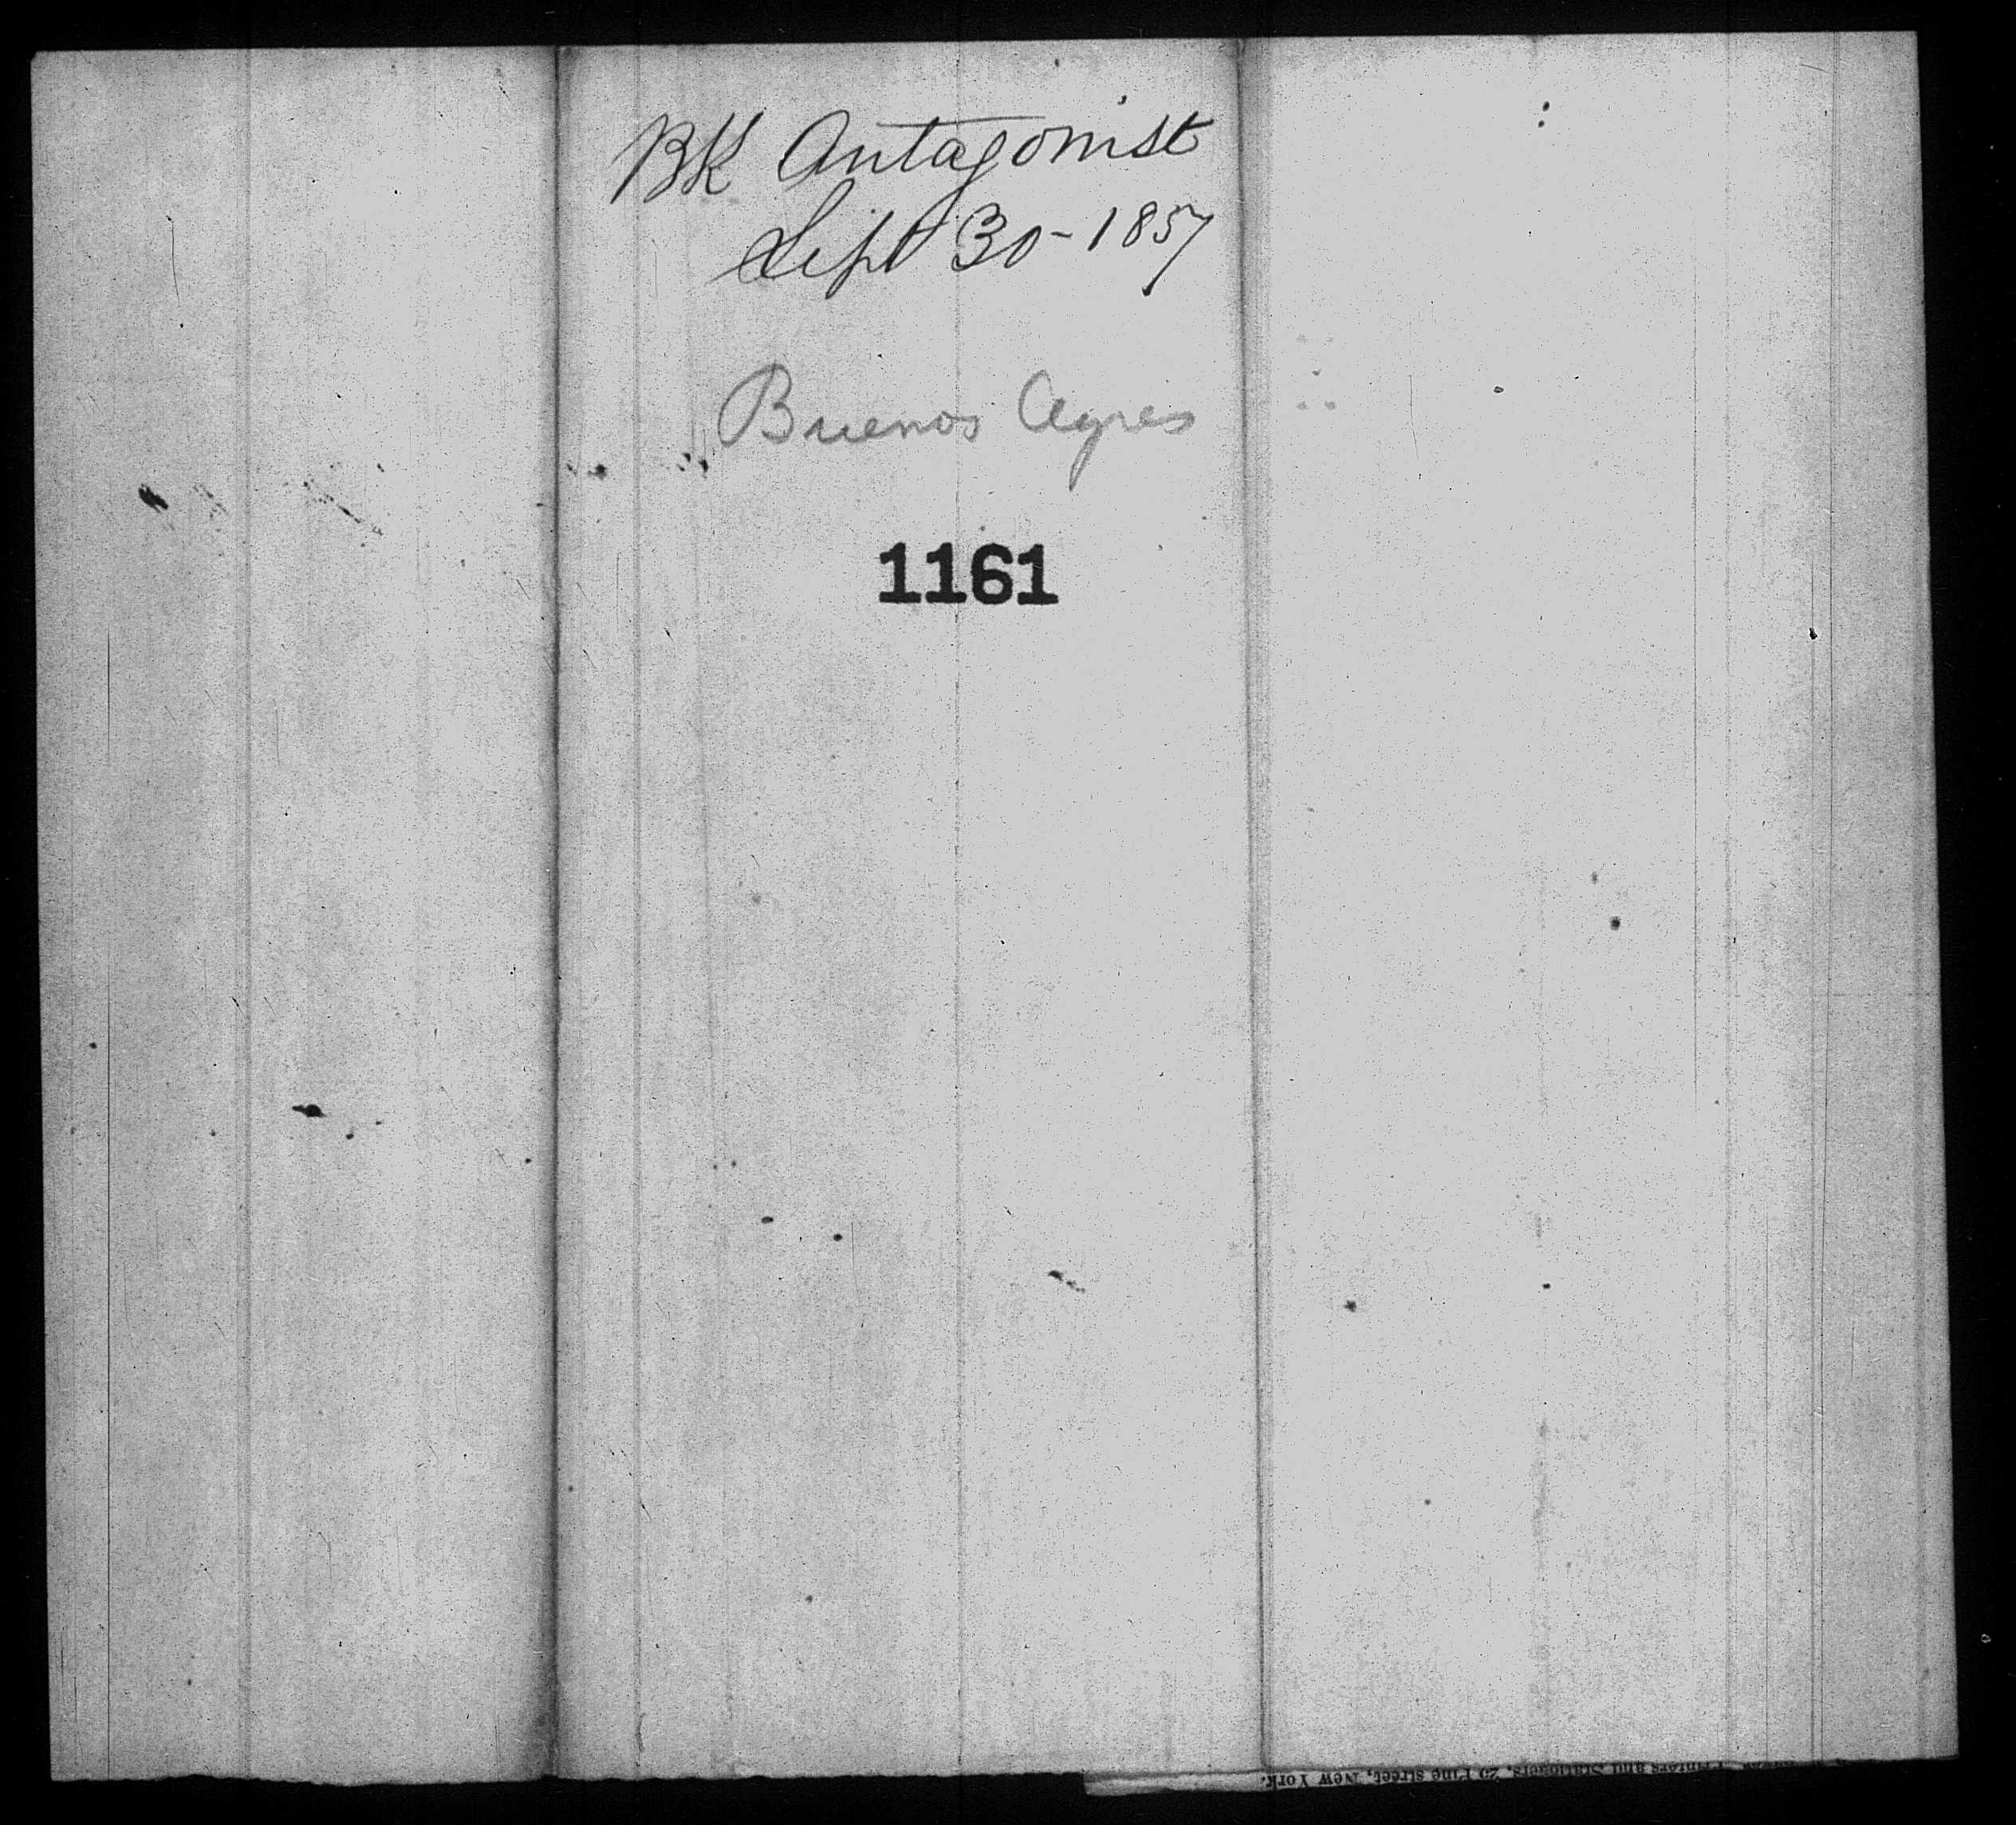 BK Antagonist
Sept 30-1857
Buenos Ayres
1161
Printers and Stationers, 25 Pine street, New York.